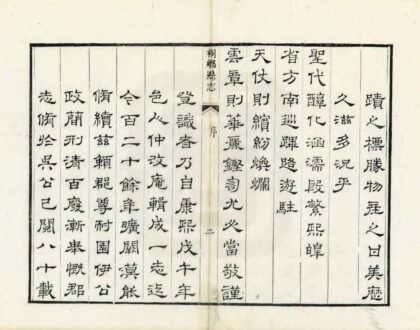 蹟之標勝物産之日美歷
久滋多況乎
聖代醇化涵濡殷繁熙皞
省方南巡蹕路遊駐
天仗則繽紛煥爛
雲章則華嚴鏗訇尤必當敬謹
桐鄉縣志
序
二
登識者乃自康熙戊午年
邑人仲改庵輯成一志迄
今百二十餘年曠闕漠能
脩續茲賴郡尊耐園伊公
政簡刑清百廢漸舉慨郡
志脩於吳公已閱八十載